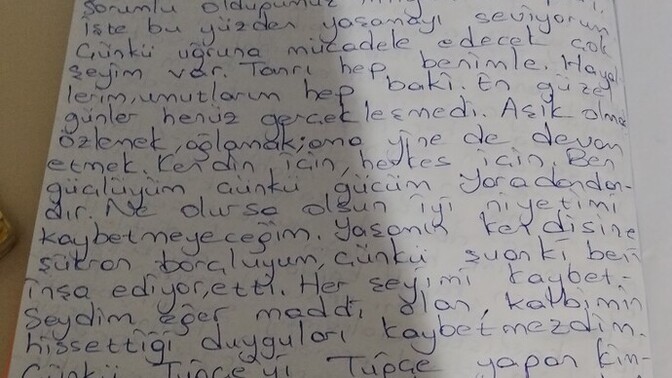 Sorumlu olduğumuz
İşte bu yüzden yaşamayı seviyorum
Çünkü uğruna mücadele edecek çok
şeyim var. Tanrı hep benimle. Hayal
lerim, umutlarım hep baki. En güzel
günler henüz gerçekleşmedi. Aşık olmak
özlemek, ağlamak; ama yine de devam
etmek. Kendin için, herkes için. Ben
güçlüyüm çünkü gücüm Yaradandan-
dır. Ne olursa olsun iyi niyetimi
kaybetmeyeceğim. Yaşamın kendisine
şükran borçluyum, çünkü şuanki beni
inşa ediyor, etti. Her şeyimi kaybet-
seydim eğer maddi olan, kalbimin
hissettiği duyguları kaybetmezdim.
Çünkü Tuğçe'yi Tuğçe yapan kim-